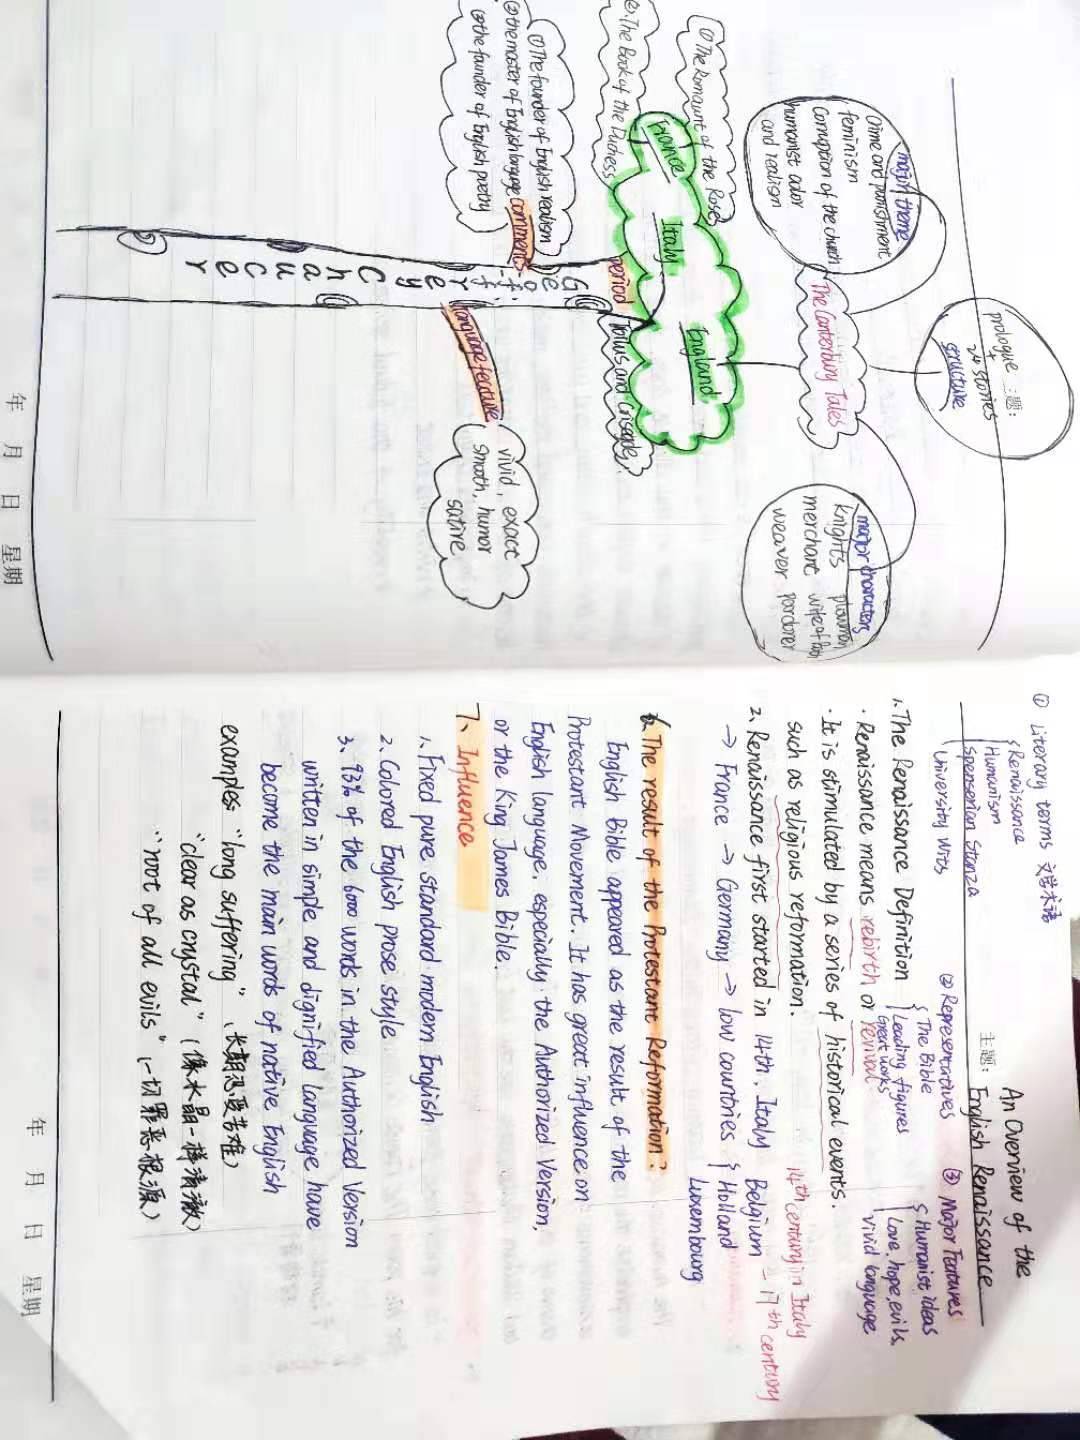 主题:
prologue
+
24 stories
structure
major theme
Crime and punishment
feminism
Corruption of the church
humanist odor
and realism
The Canterbury Tales
major characters
knights plowman
merchant wife of Bath
weaver pardoner
(1) The Romaunt of the Rose
2. The Book of the Duchess
France
Italy
England
period
Troilus and Criseyde
(1) The founder of English realism
(2) the master of English language
(3) the founder of English poetry
comments
Geoffrey Chaucer
language feature
vivid, exact
smooth, humor
satire
年 月 日 星期
An Overview of the
主题: English Renaissance
① Literary terms 文学术语
Renaissance
Humanism
Spenserian Stanza
University Wits
② Representatives
The Bible
Leading figures
Great works
③ Major Features
Humanist ideas
Love, hope, evils
vivid language
1. The Renaissance Definition
· Renaissance means rebirth or revival
· It is stimulated by a series of historical events.
such as religious reformation.
14th century in Italy – 17th century
2. Renaissance first started in 14th. Italy
→ France → Germany → low countries
Belgium
Holland
Luxembourg
6. The result of the Protestant Reformation?
English Bible appeared as the result of the
Protestant Movement. It has great influence on
English language, especially the Authorized Version,
or the King James Bible.
7. Influence
1. Fixed pure standard modern English
2. Colored English prose style
3. 93% of the 6000 words in the Authorized Version
written in simple and dignified language have
become the main words of native English
examples: "long suffering" (长期忍受苦难)
"clear as crystal" (像水晶一样清澈)
"root of all evils" (一切罪恶根源)
年 月 日 星期